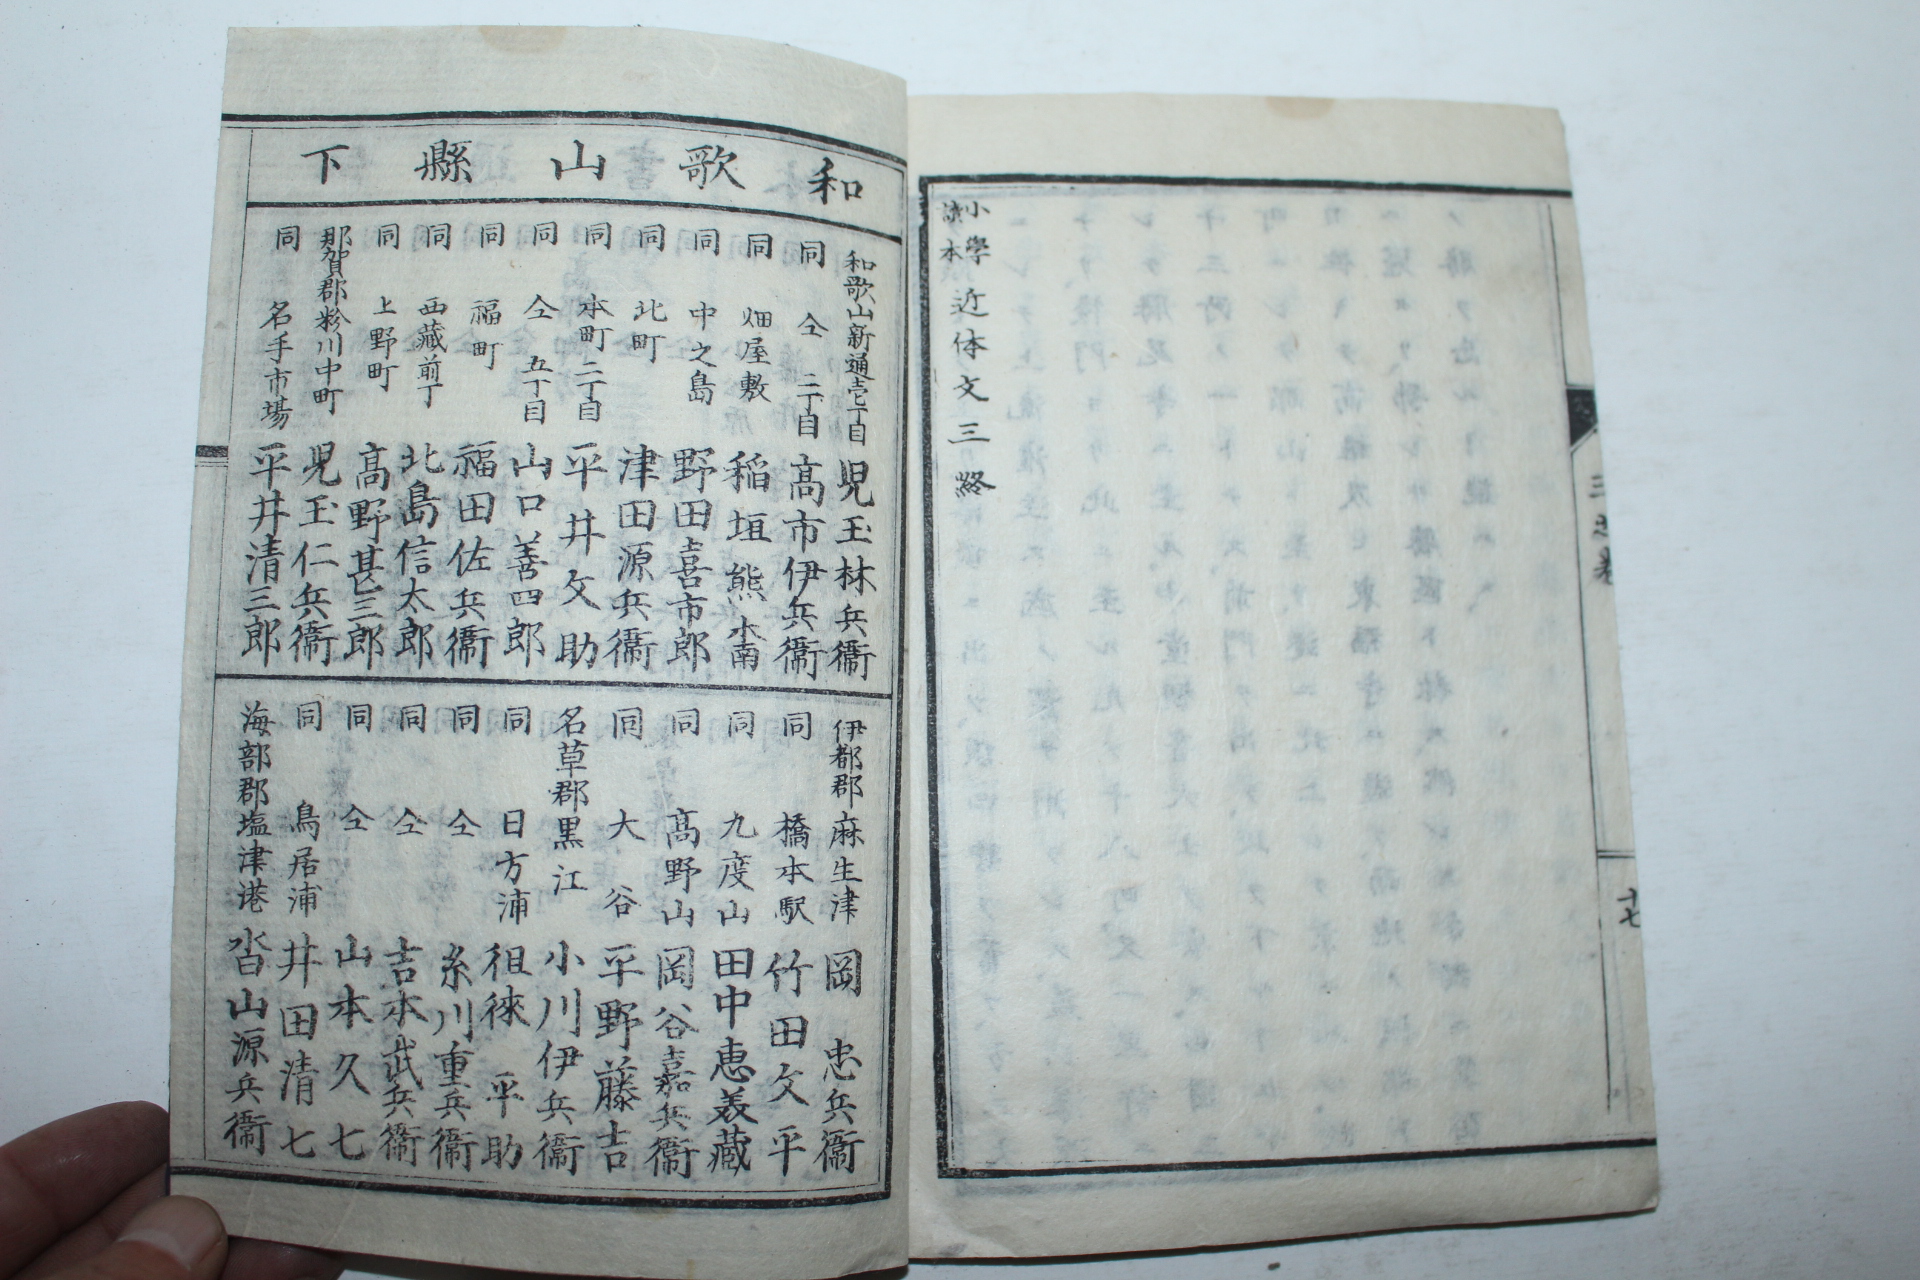 小學
讀本
近体文三終
三之卷
十七
和歌山縣下
和歌山新通壱丁目 児玉林兵衞
同 仝 二丁目 高市伊兵衞
同 畑屋敷 稲垣熊楠
同 中之島 野田喜市郎
同 北町 津田源兵衞
同 本町二丁目 平井文助
同 仝 五丁目 山口善四郎
同 福町 福田佐兵衞
同 西藏前丁 北島信太郎
同 上野町 高野甚三郎
那賀郡粉川中町 児玉仁兵衞
同 名手市場 平井清三郎
伊都郡麻生津 岡忠兵衞
同 橋本駅 竹田文平
同 九度山 田中恵美藏
同 高野山 岡谷嘉兵衞
同 大谷 平野藤吉
名草郡黒江 小川伊兵衞
同 日方浦 徂徠平助
同 仝 糸川重兵衞
同 仝 吉本武兵衞
同 仝 山本久七
同 鳥居浦 井田清七
海部郡塩津港 沓山源兵衞